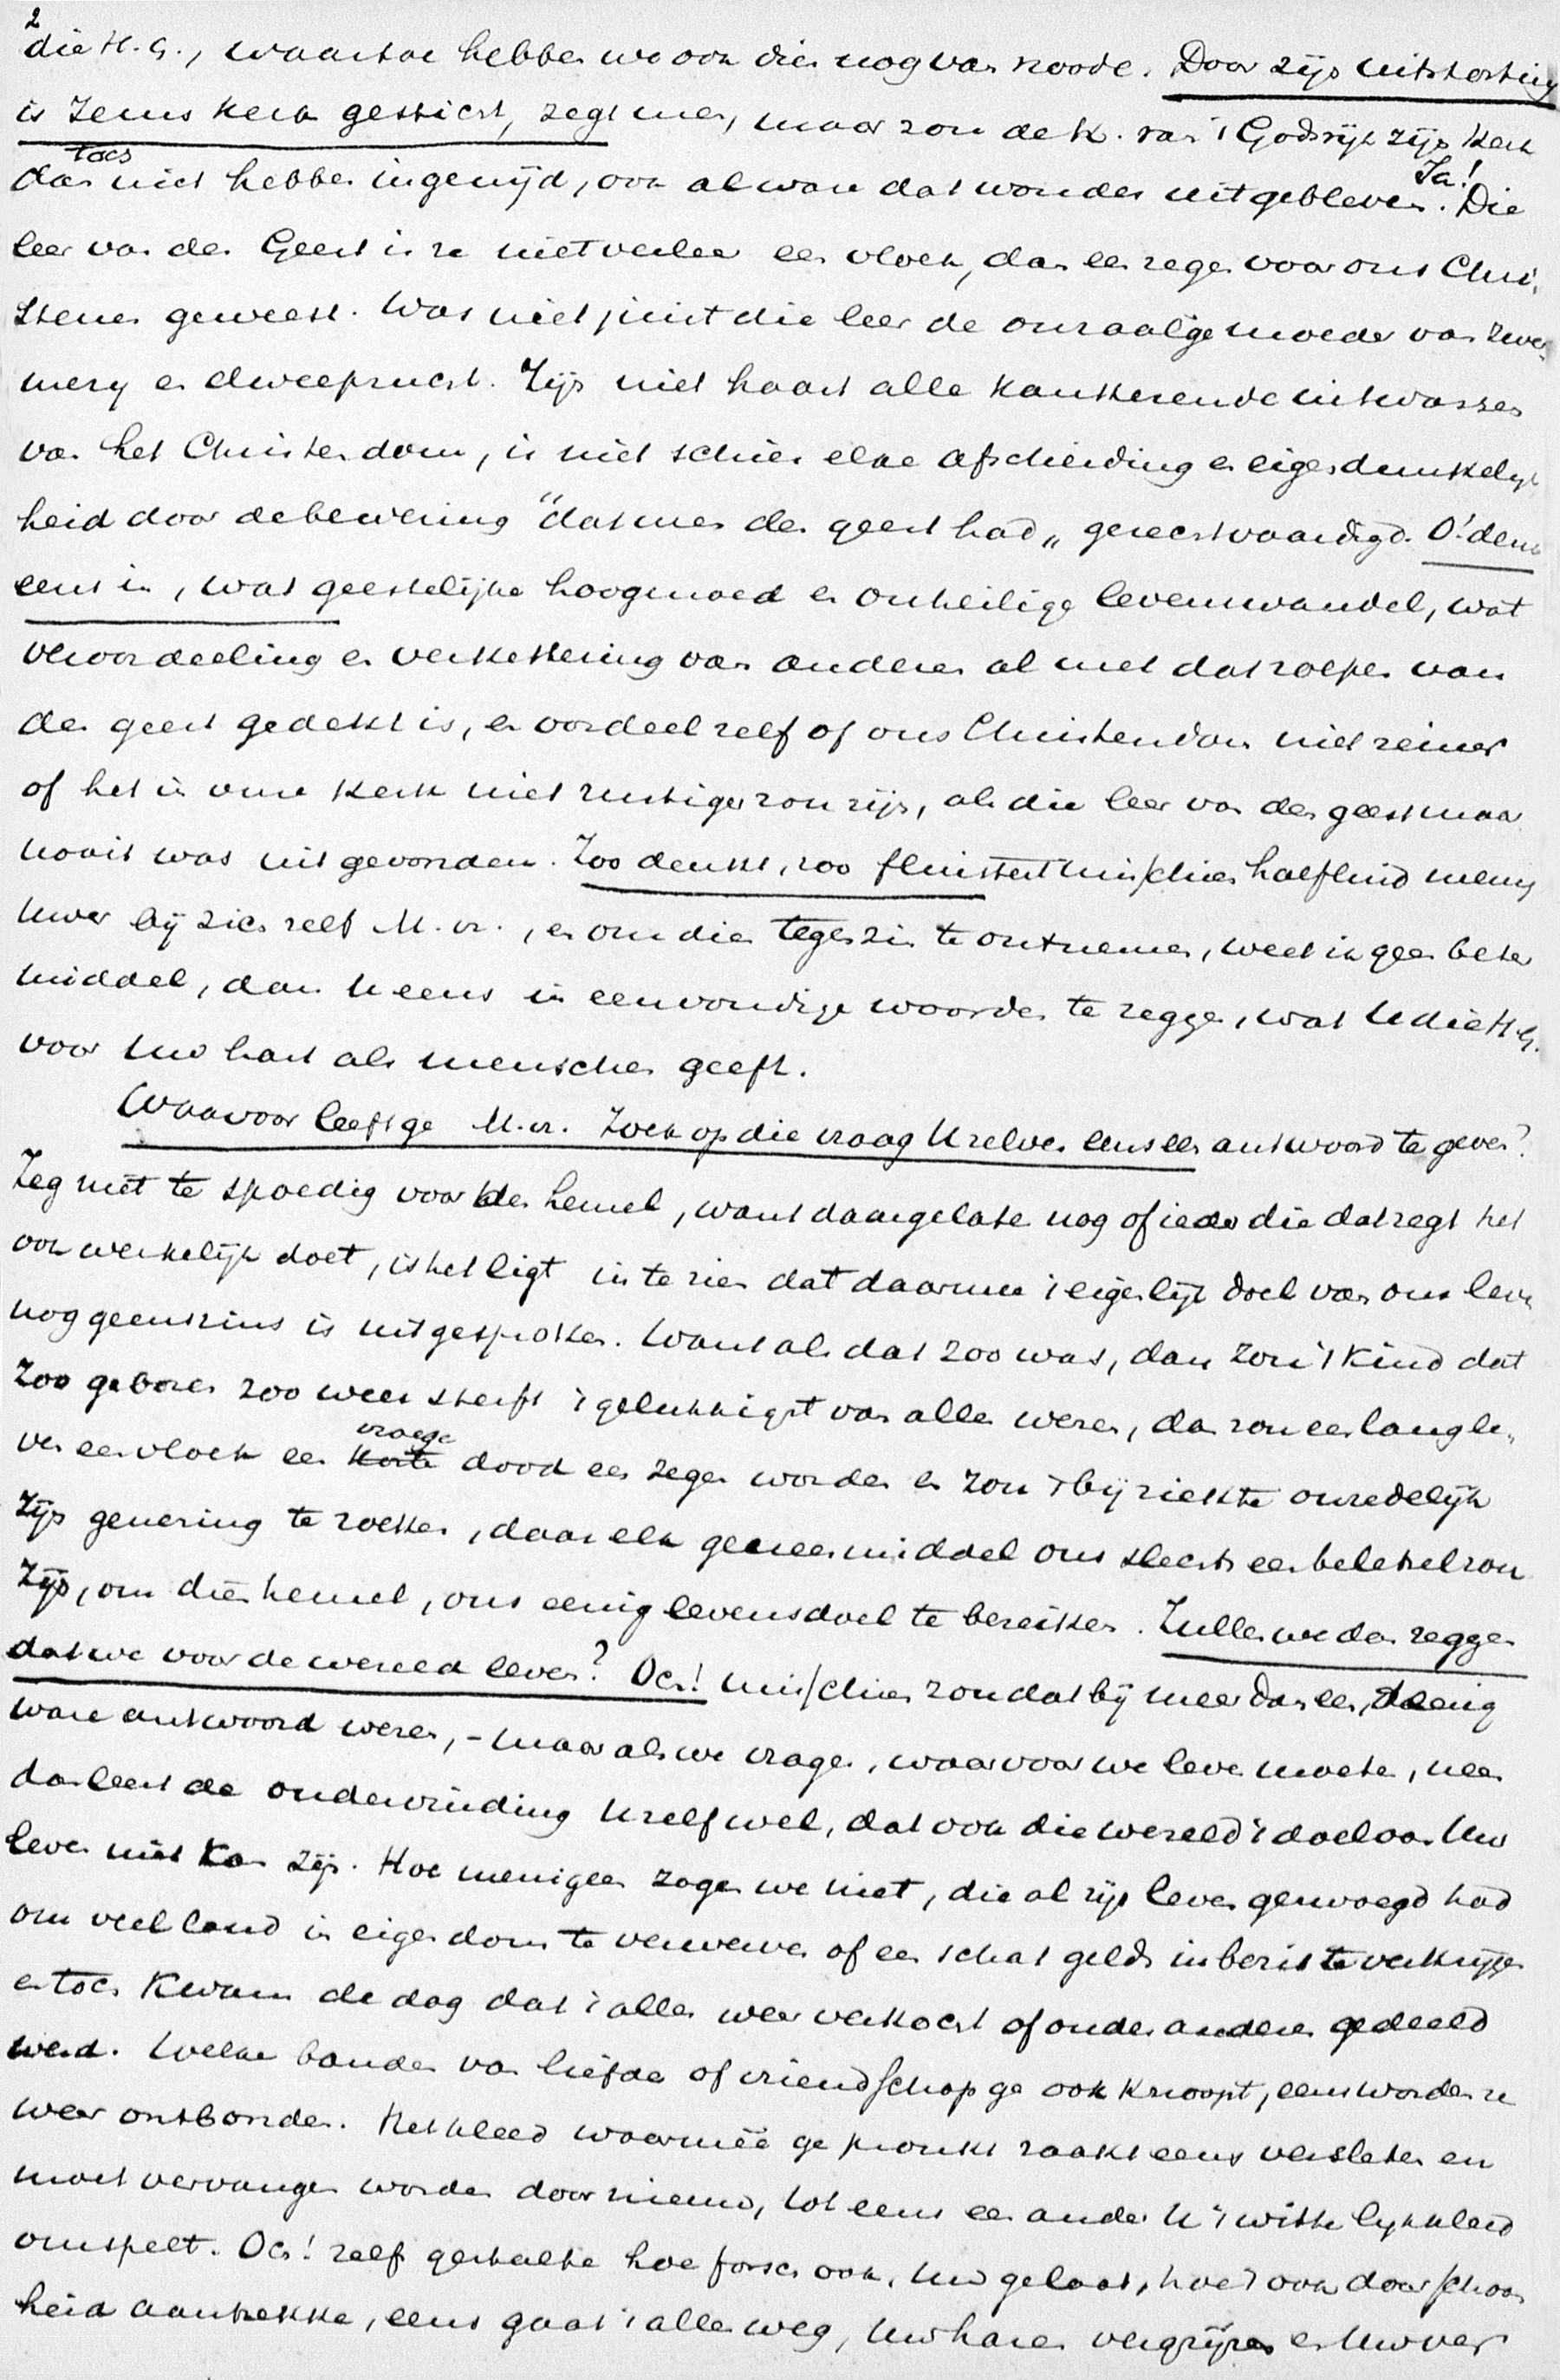 2
die H.G., waartoe hebben we ook dien nog van noode. Door zijn uitstorting
is Jezus kerk gesticht, zegt men, maar zou de K. van 't Godsrijk zijn kerk
dan toch niet hebben ingewijd, ook al ware dat wonder uitgebleven. Ja! Die
leer van den Geest is ze niet veeleer een vloek, dan een zegen voor ons Chri-
stenen geweest. Was niet juist die leer de onzaalige moeder van zwer
mery en dweepzucht. Zijn niet haast alle kankerende uitwassen
van het Christendom, is niet schier elke afscheiding en eigendunkelijk
heid door de bewering "dat men den geest had" gerechtvaardigd. O! denk
eens in, wat geestelijke hoogmoed en onheilige levenswandel, wat
veroordeeling en verkettering van anderen al met dat roepen van
den geest gedekt is, en oordeel zelf of ons Christendom niet reiner
of het in onze kerk niet rustiger zou zijn, als die leer van den geest maar
nooit was uitgevonden. Zoo denkt, zoo fluistert misschien halfluid menig
uwer bij zich zelf M. vr., en om dien tegenzin te ontnemen, weet ik geen beter
middel, dan U eens in eenvoudige woorden te zeggen, wat U die H.G.
voor Uw hart als menschen geeft.
Waarvoor leeft ge M. vr. Zoek op die vraag Uzelven eens een antwoord te geven?
Zeg niet te spoedig voor den hemel, want daargelaten nog of ieder die dat zegt het
ook werkelijk doet, is het ligt in te zien dat daarmee 't eigenlijk doel van ons leven
nog geenszins is uitgesproken. Want als dat zoo was, dan zou 't kind dat
zoo geboren zoo weer sterft 't gelukkigst van allen wezen, dan zou een lang le-
ven een vloek een korte vroege dood een zegen worden en zou 't bij ziekte onredelijk
zijn genezing te zoeken, daar elk geneesmiddel ons slechts een beletsel zou
zijn, om dien hemel, ons eenig levensdoel te bereiken. Zullen we dan zeggen
dat we voor de wereld leven? Och! misschien zou dat bij meer dan een, 't eenig
ware antwoord wezen, - maar als we vragen, waarvoor we leven moeten, neen
dan leert de ondervinding Uzelf wel, dat ook die wereld 't doel van Uw
leven niet kan zijn. Hoe menigeen zagen we niet, die al zijn leven gezwoegd had
om veel land in eigendom te verwerven of een schat gelds in bezit te verkrijgen
en toch kwam de dag dat 't alles weer verkocht of onder anderen gedeeld
werd. Welke banden van liefde of vriendschap ge ook knoopt, eens worden ze
weer ontbonden. Het kleed waarmeê ge pronkt raakt eens versleten en
moet vervangen worden door nieuw, tot eens een ander U 't witte lijkkleed
omspelt. Och! zelf gestalte hoe forsch ook, Uw gelaat, hoe 't ook door schoon
heid aantrekke, eens gaat 't alles weg, Uw haren vergrijzen en Uw ver